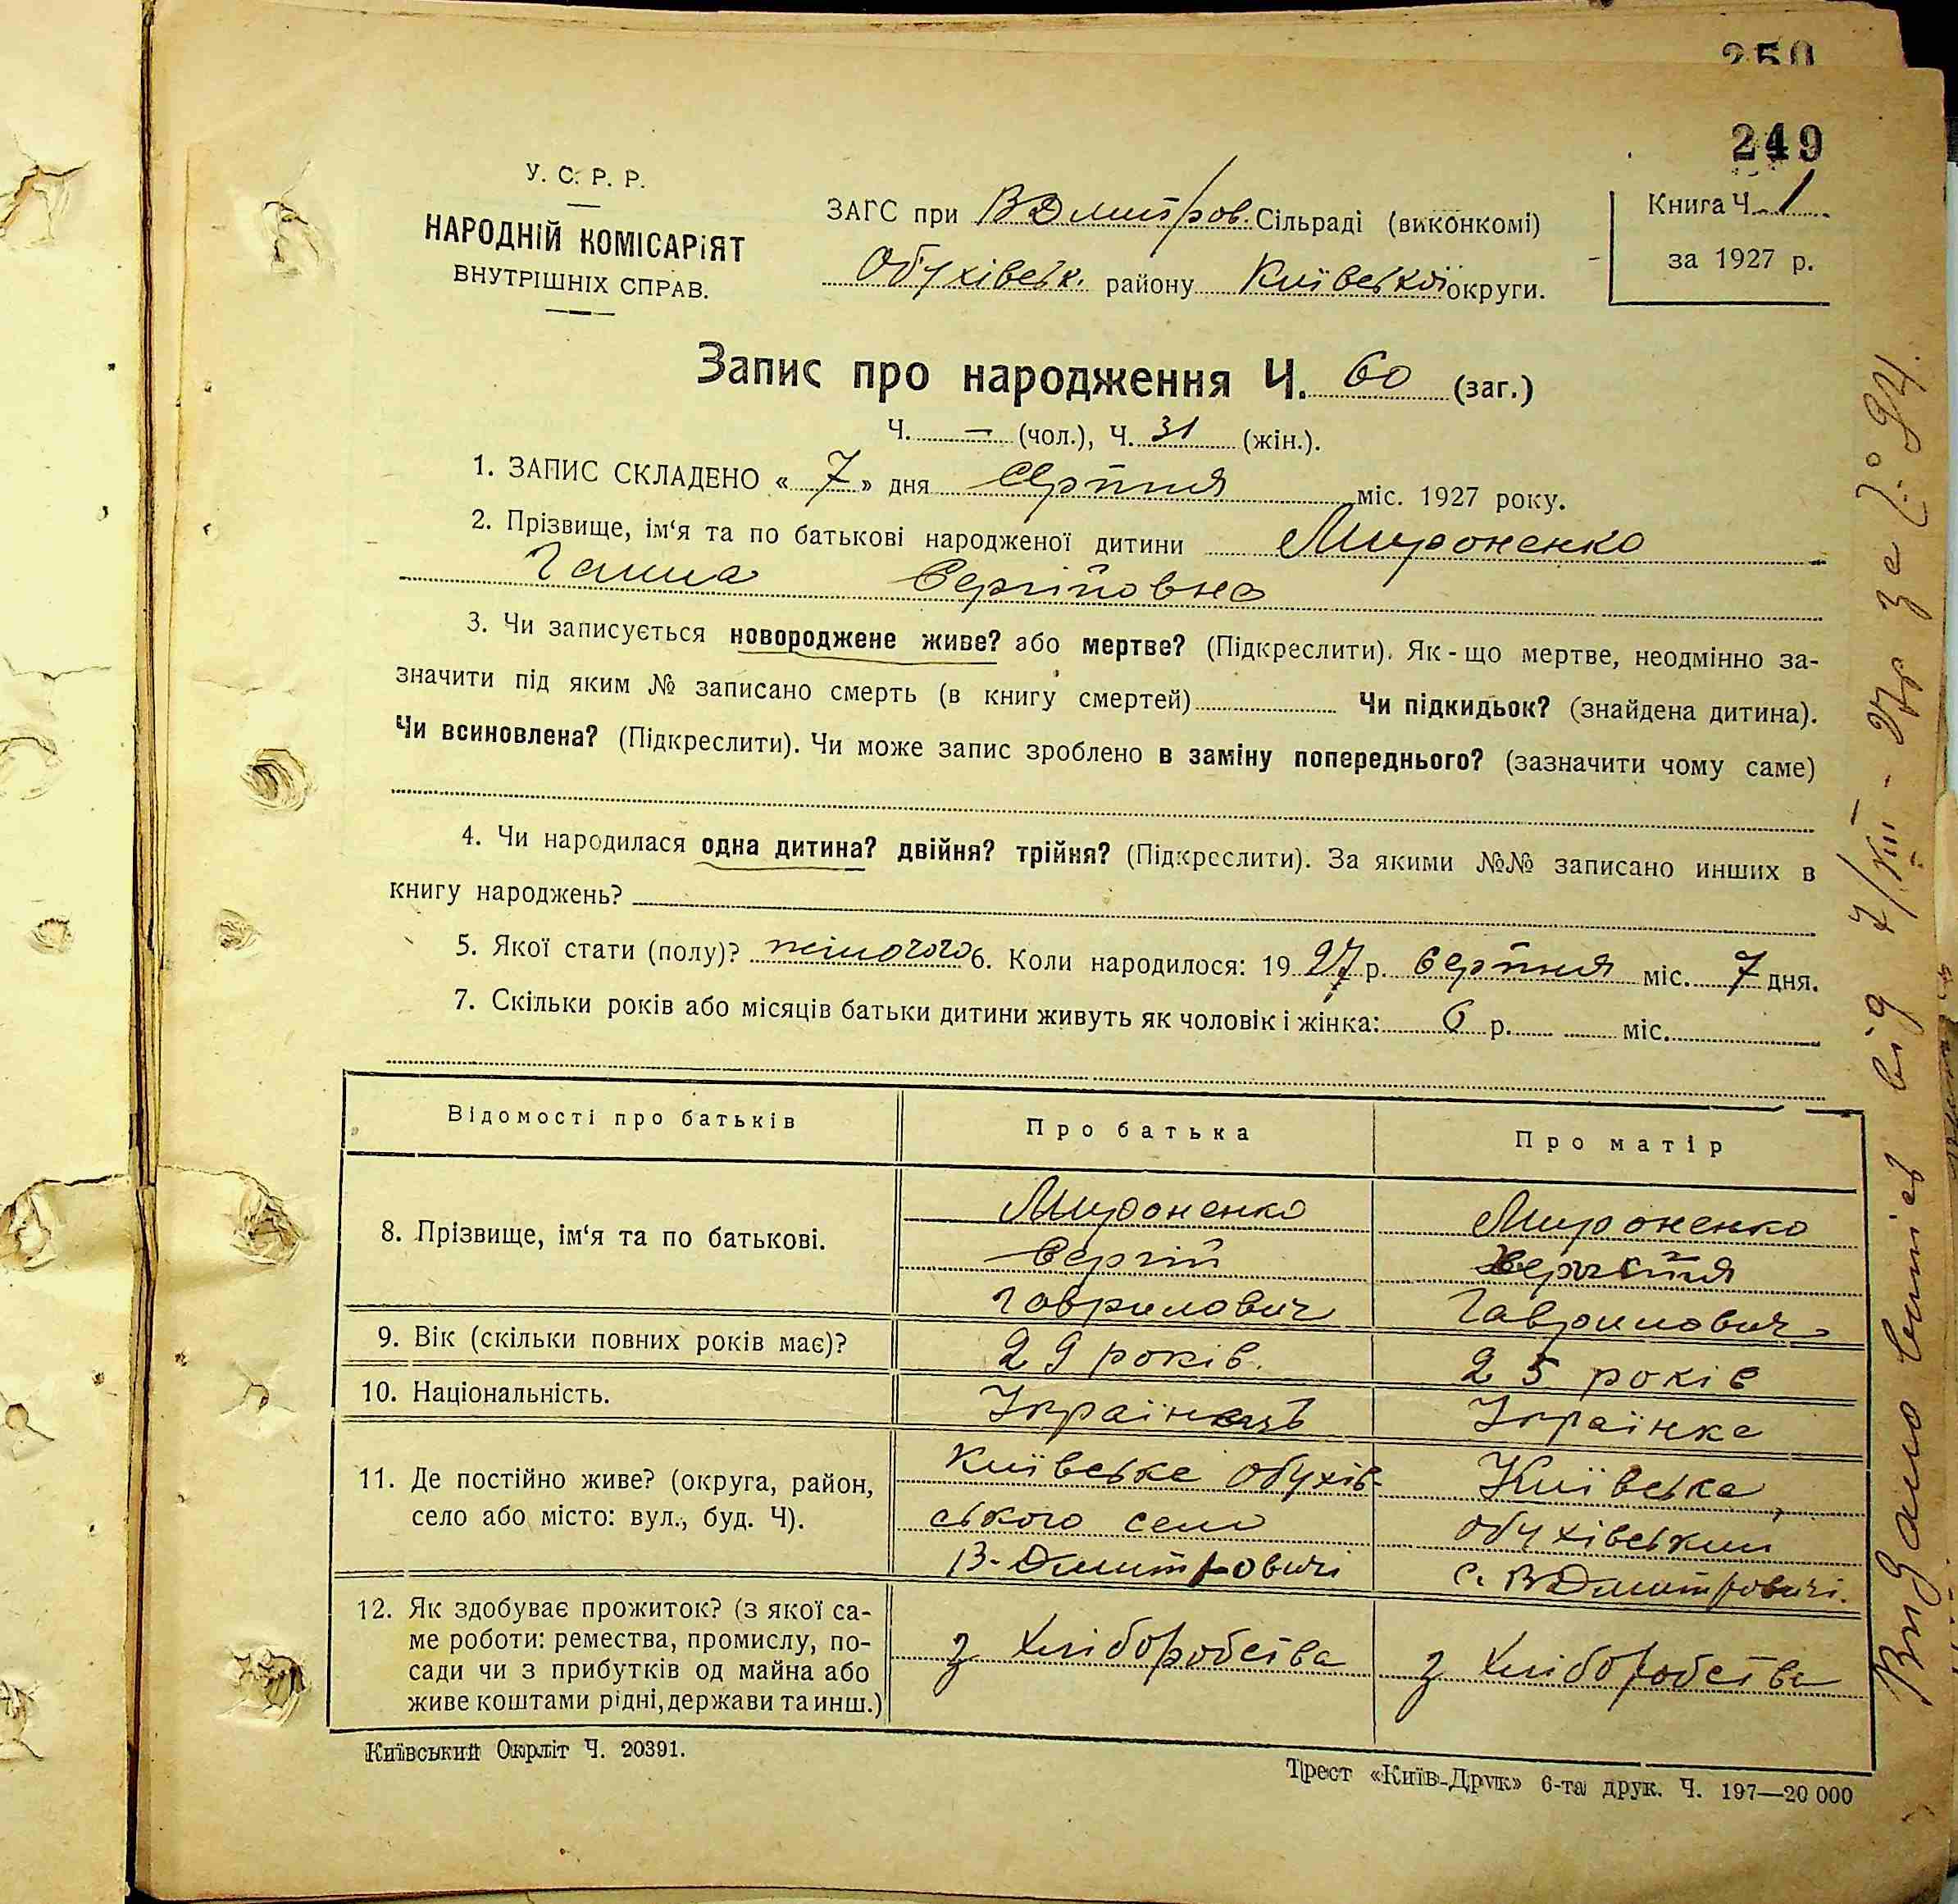 250
249
У. С. Р. Р.
НАРОДНІЙ КОМІСАРІЯТ
ВНУТРІШНІХ СПРАВ.
ЗАГС при ВДмитров. Сільраді (виконкомі)
Обухівськ. району Київської округи.
Книга Ч. 1
за 1927 р.
Запис про народження Ч. 60 (заг.)
Ч. — (чол.), Ч. 31 (жін.).
1. ЗАПИС СКЛАДЕНО « 7 » дня Серпня міс. 1927 року.
2. Прізвище, ім‘я та по батькові народженої дитини Мироненко
Ганна Сергіовна
3. Чи записується новороджене живе? або мертве? (Підкреслити). Як-що мертве, неодмінно за-
значити під яким № записано смерть (в книгу смертей) Чи підкидьок? (знайдена дитина).
Чи всиновлена? (Підкреслити). Чи може запис зроблено в заміну попереднього? (зазначити чому саме)
4. Чи народилася одна дитина? двійня? трійня? (Підкреслити). За якими №№ записано инших в
книгу народжень?
5. Якої стати (полу)? жіночого 6. Коли народилося: 1927 р. Серпня міс. 7 дня.
7. Скільки років або місяців батьки дитини живуть як чоловік і жінка: 6 р. міс.
Відомості про батьків Про батька Про матір
8. Прізвище, ім‘я та по батькові.
Мироненко
Сергій
Гаврилович
Мироненко
Гавриловна
9. Вік (скільки повних років має)? 29 років. 25 років
10. Національність. Українець Українка
11. Де постійно живе? (округа, район,
село або місто: вул., буд. Ч).
Київське Обухів-
ського село
В-Дмитровичі
Київська,
обухівський
с. ВДмитровичі.
12. Як здобуває прожиток? (з якої са-
ме роботи: ремества, промислу, по-
сади чи з прибутків од майна або
живе коштами рідні, держави та инш.)
з хліборобства
з хліборобства
Київський Окрліт Ч. 20391.
Трест «Київ-Друк» 6-та друк. Ч. 197—20 000
Видано витяг від 7/VIII-27р за